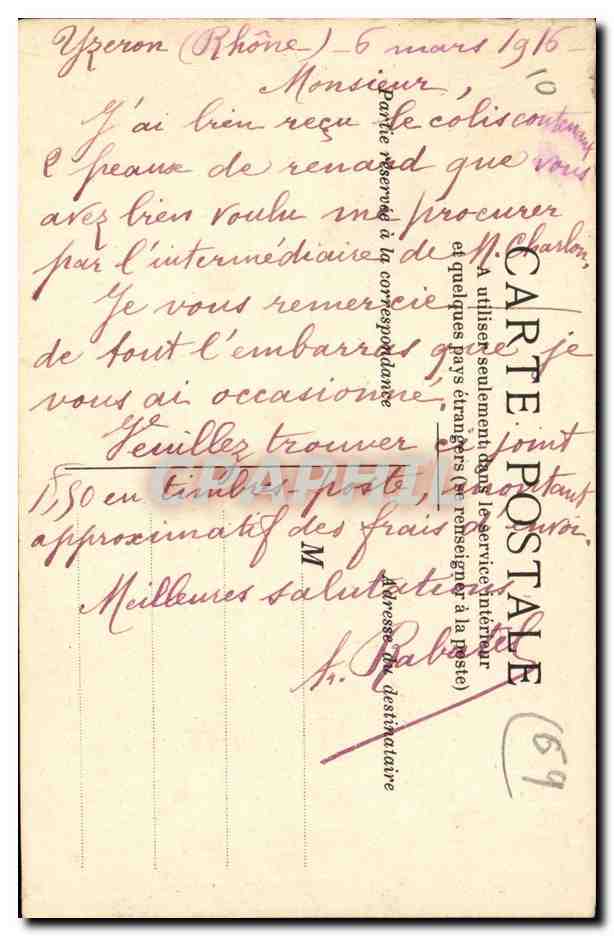 Yzeron (Rhône) - 6 mars 1916 -
Monsieur,
J'ai bien reçu le colis contenant
2 peaux de renard que vous
avez bien voulu me procurer
par l'intermédiaire de M. Charlon,
Je vous remercie
de tout l'embarras que je
vous ai occasionné.
Veuillez trouver ci joint
1,50 en timbres-poste, montant
approximatif des frais d'envoi.
Meilleures salutations
Rabastel
10
CARTE POSTALE
A utiliser seulement dans le service intérieur
et quelques pays étrangers (se renseigner à la poste)
Partie réservée à la correspondance
Adresse du destinataire
M
(69